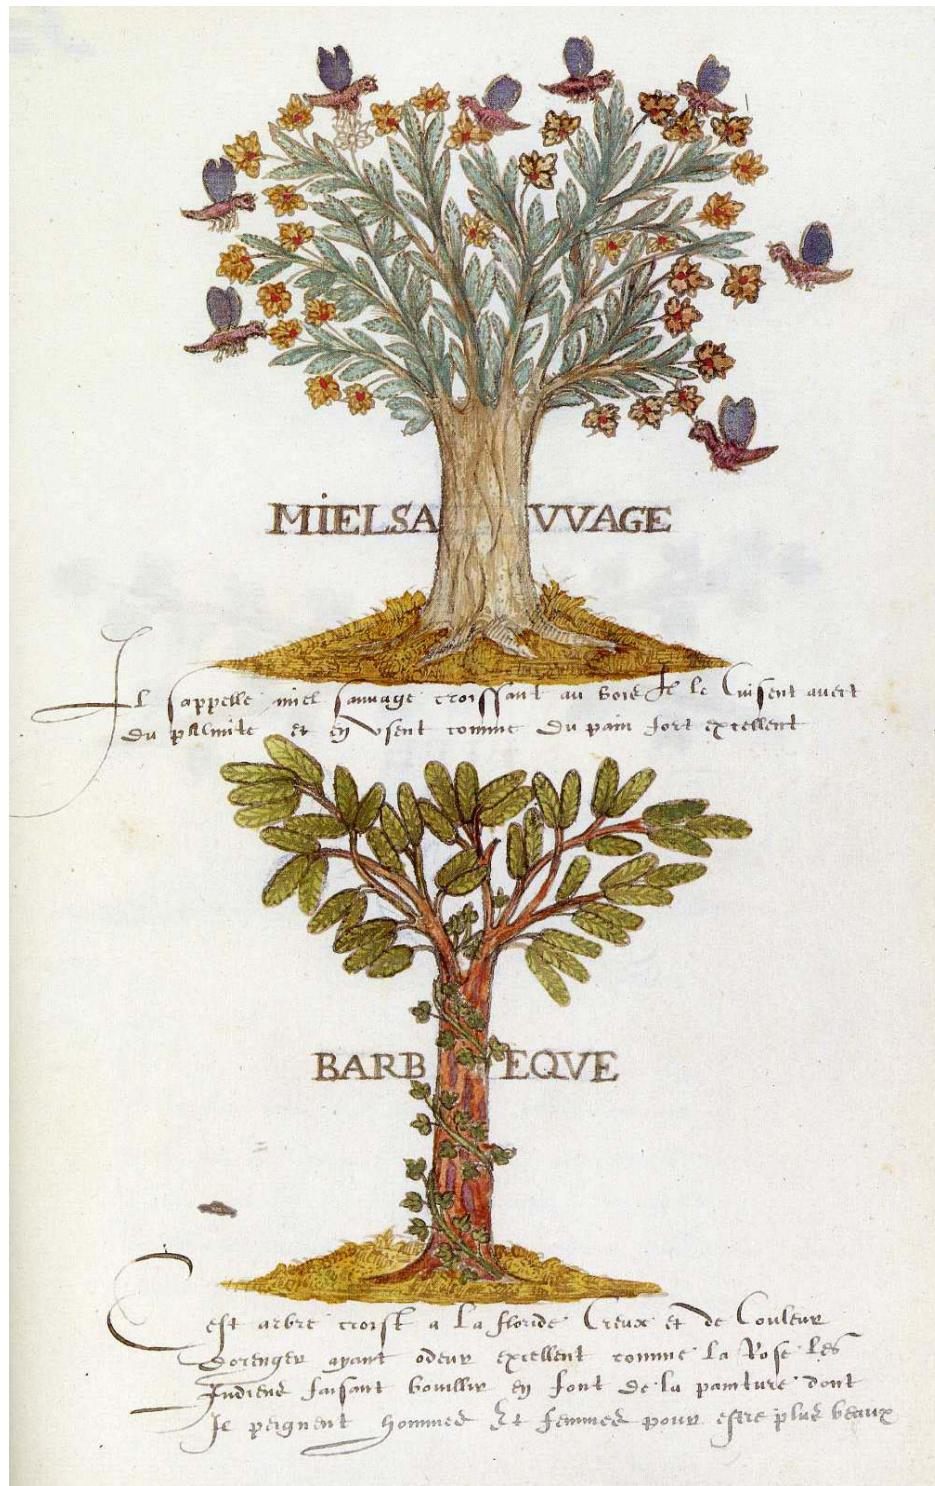 MIELSAVVAGE
Il sappelle miel sauvage croissant au bois Il le Cuisent avect
du palmite et en Vsent comme du pain fort excellent
BARBEQVE
Cest arbre croist a La floride Creux et de Couleur
dorenger ayant odeur excellent comme La Rose Les
Indiens faisant bouillir en font de La painture dont
Ie peignent hommes Et femmes pour estre plus beaux